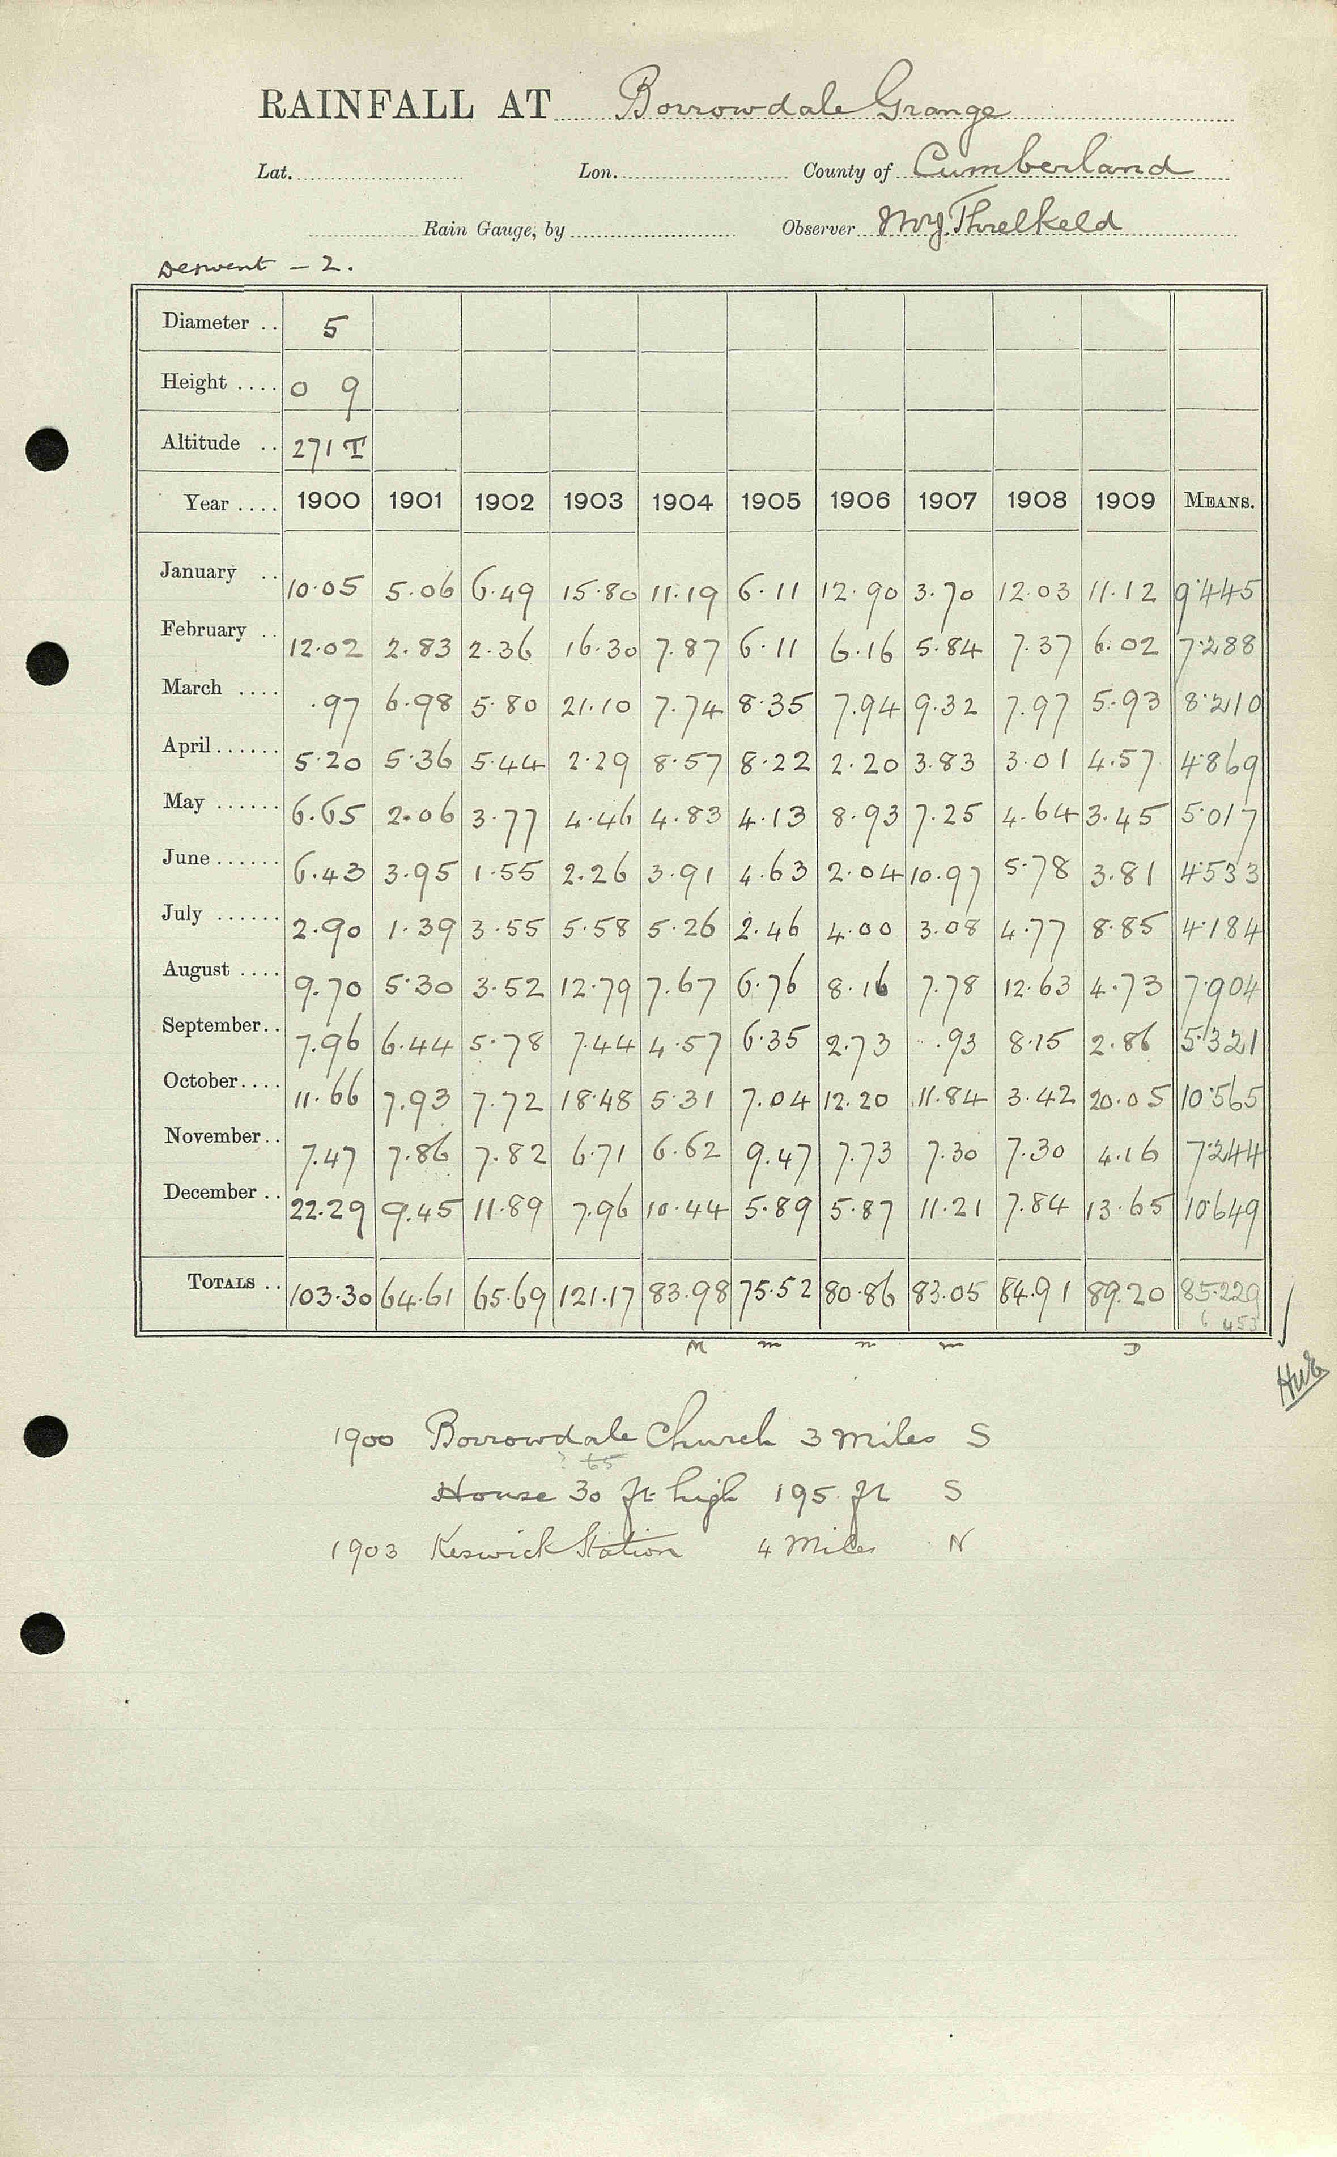 RAINFALL AT Borrowdale Grange
Lat. Lon. County of Cumberland
Rain Gauge, by Observer Threlkeld
Derwent - 2.
Diameter .. 5
Height .... 0 9
Altitude .. 271 T
Year .... 1900 1901 1902 1903 1904 1905 1906 1907 1908 1909 MEANS.
January .. 10.05 5.06 6.49 15.80 11.19 6.11 12.90 3.70 12.03 11.12 9.445
February .. 12.02 2.83 2.36 16.30 7.87 6.11 6.16 5.84 7.37 6.02 7.288
March .... .97 6.98 5.80 21.10 7.74 8.35 7.94 9.32 7.97 5.93 8.210
April ...... 5.20 5.36 5.44 2.29 8.57 8.22 2.20 3.83 3.01 4.57 4.869
May ...... 6.65 2.06 3.77 4.46 4.83 4.13 8.93 7.25 4.64 3.45 5.017
June ...... 6.43 3.95 1.55 2.26 3.91 4.63 2.04 10.97 5.78 3.81 4.533
July ...... 2.90 1.39 3.55 5.58 5.26 2.46 4.00 3.08 4.77 8.85 4.184
August .... 9.70 5.30 3.52 12.79 7.67 6.76 8.16 7.78 12.63 4.73 7.904
September .. 7.96 6.44 5.78 7.44 4.57 6.35 2.73 .93 8.15 2.86 5.321
October .... 11.66 7.93 7.72 18.48 5.31 7.04 12.20 11.84 3.42 20.05 10.565
November .. 7.47 7.86 7.82 6.71 6.62 9.47 7.73 7.30 7.30 4.16 7.244
December .. 22.29 9.45 11.89 7.96 10.44 5.89 5.87 11.21 7.84 13.65 10.649
TOTALS .. 103.30 64.61 65.69 121.17 83.98 75.52 80.86 83.05 84.91 89.20 85.229
M m m m D
1900 Borrowdale Church 3 miles S
? 65
House 30 ft high 195 ft S
1903 Keswick Station 4 Miles N